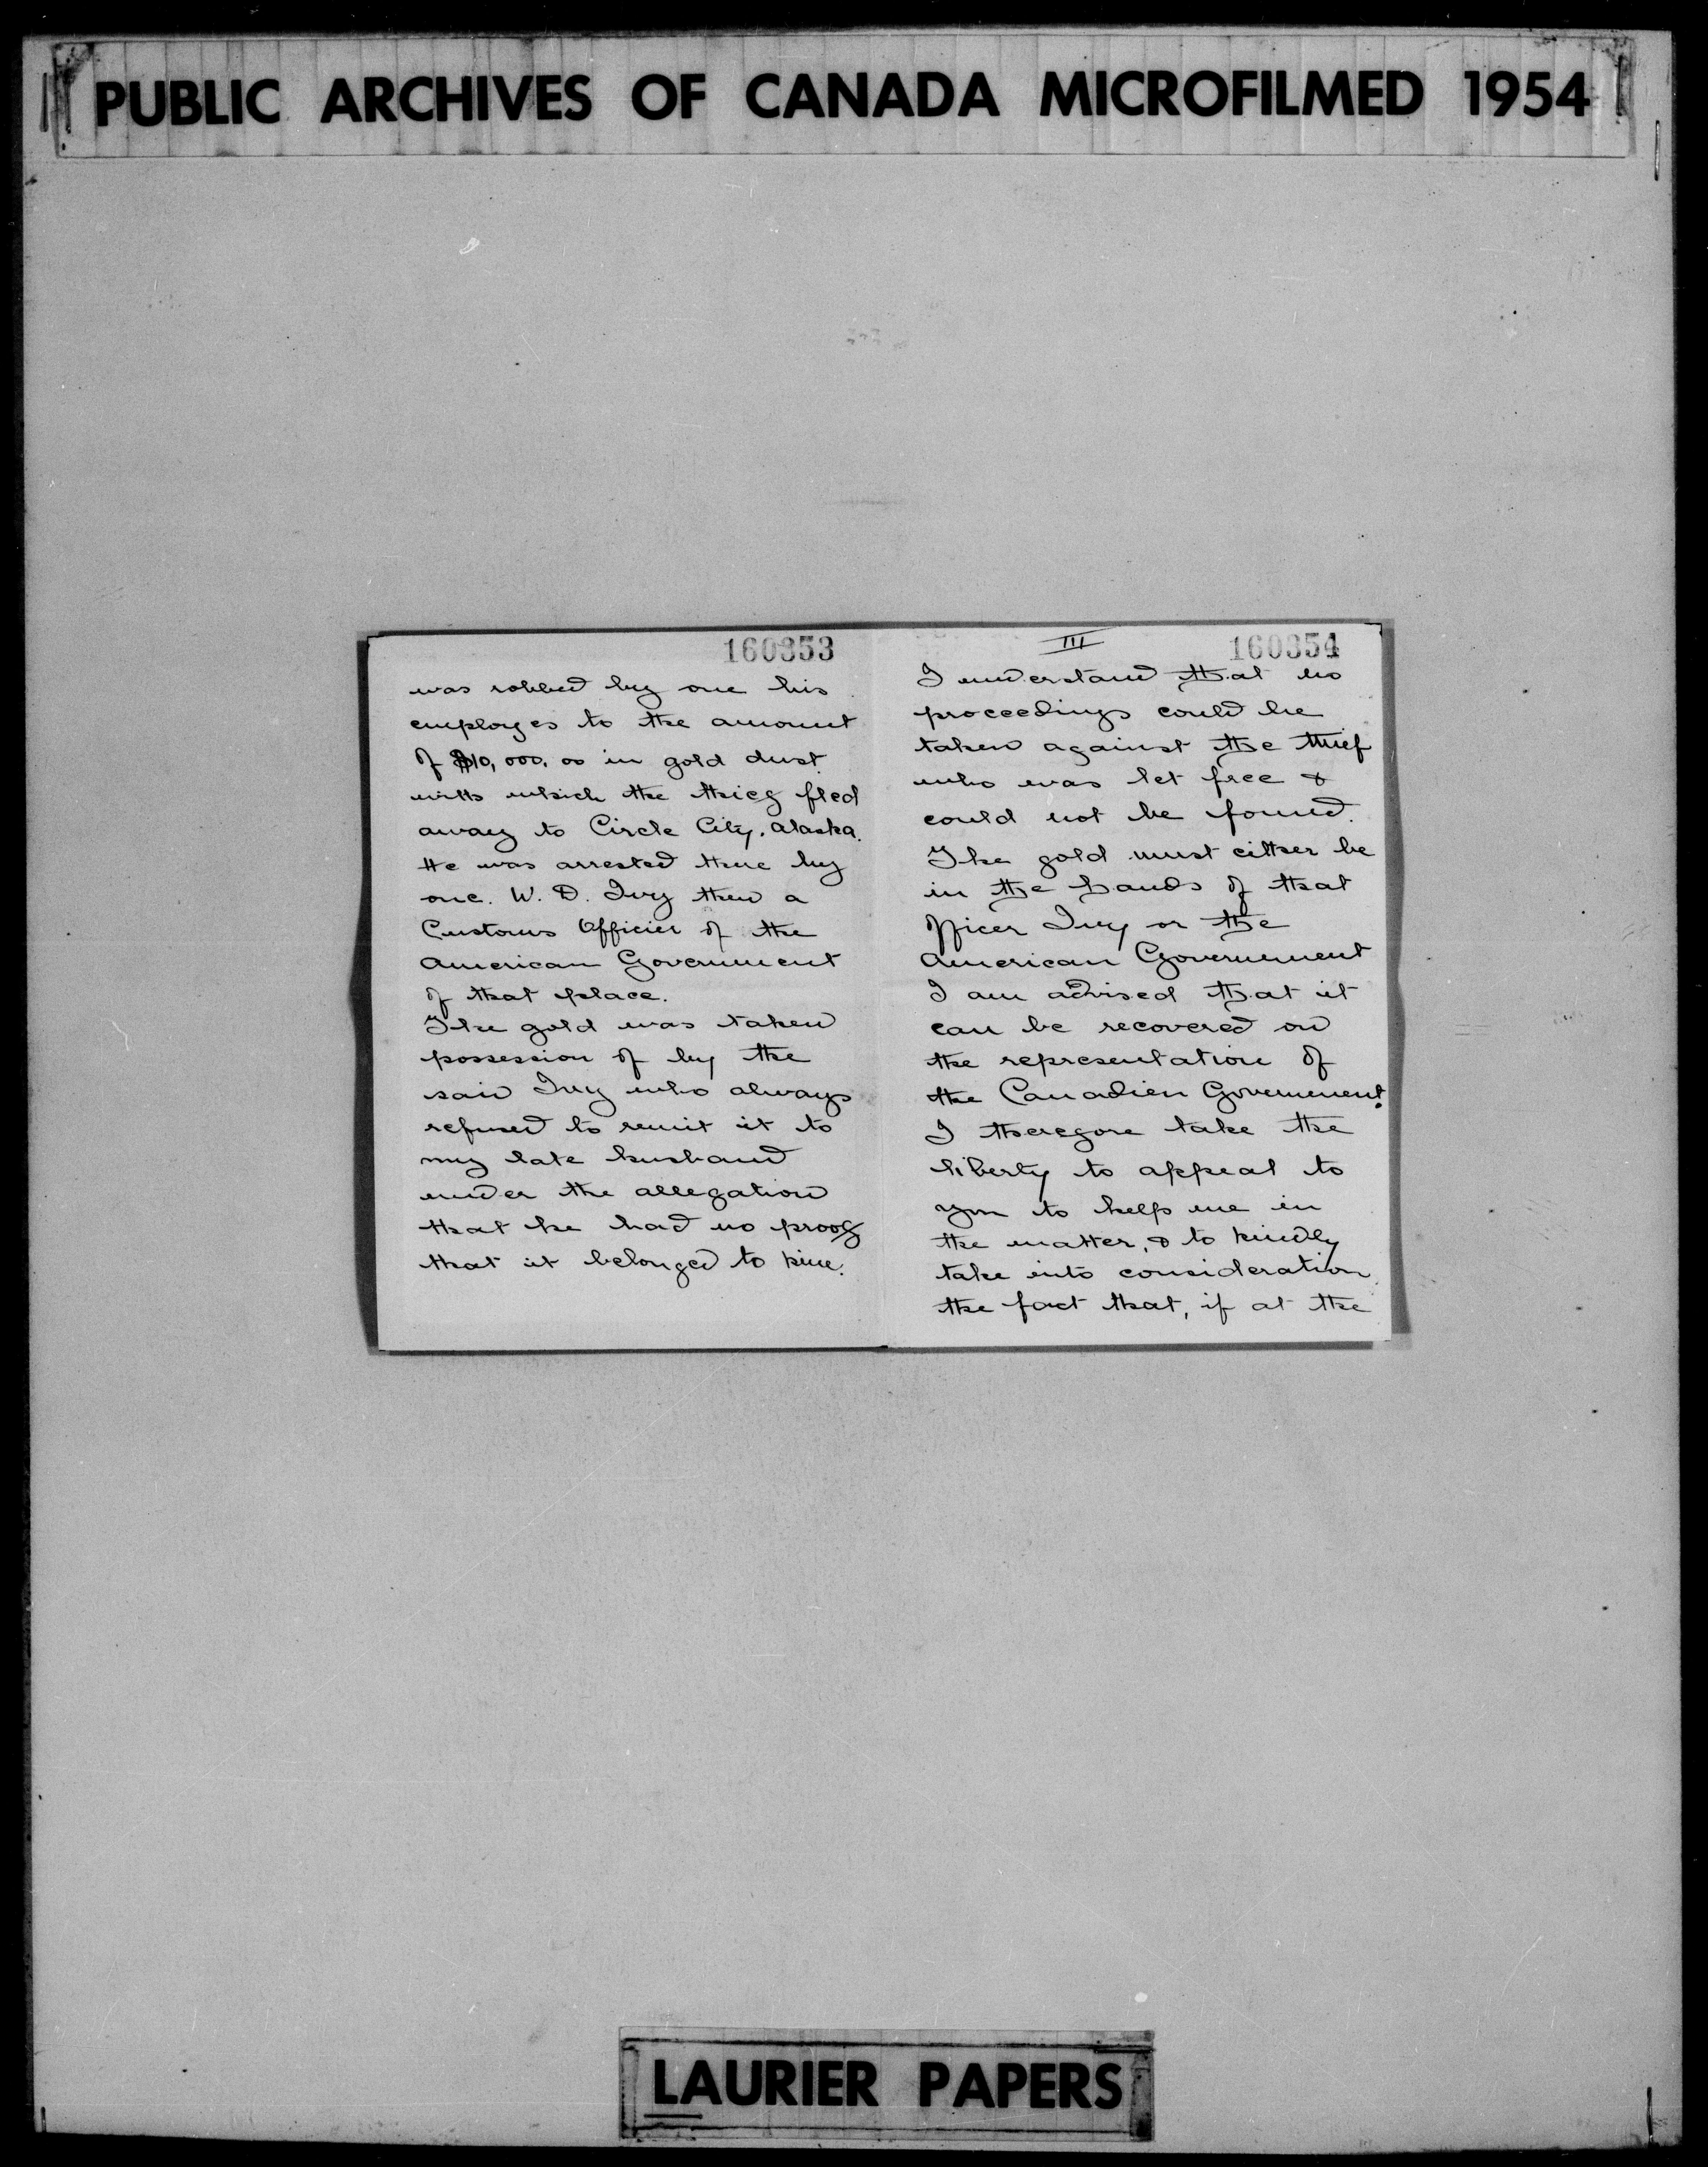 PUBLIC ARCHIVES OF CANADA MICROFILMED 1954
160353
was robbed by one his
employes to the amount
of $10,000.00 in gold dust
with which the thief fled
away to Circle City, Alaska.
He was arrested there by
one. W. D. Ivy then a
Customs Officier of the
American Government
of that place.
The gold was taken
possession of by the
said Ivy who always
refused to remit it to
my late husband
under the allegation
that he had no proof
that it belonged to him.
III
160354
I understand that no
proceedings could be
taken against the thief
who was let free &
could not be found.
The gold must either be
in the hands of that
officer Ivy or the
American Governement
I am advised that it
can be recovered on
the representation of
the Canadien Governement.
I therefore take the
liberty to appeal to
you to help me in
the matter, & to kindly
take into consideration
the fact that, if at the
LAURIER PAPERS